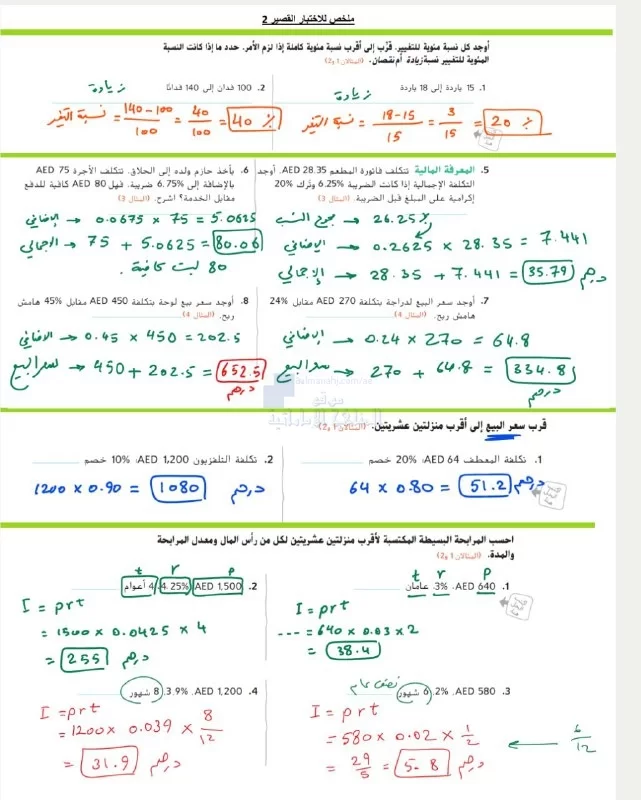 ملخص للاختبار القصير 2
أوجد كل نسبة مئوية للتغيير. قرّب إلى أقرب نسبة مئوية كاملة إذا لزم الأمر. حدد ما إذا كانت النسبة
المئوية للتغيير نسبة زيادة أم نقصان. (المثالان 1 و2)
1. 15 ياردة إلى 18 ياردة
زيادة
نسبة التغير = 18-15 / 15 = 3 / 15 = 20 %
2. 100 فدان إلى 140 فدانًا
زيادة
نسبة التغير = 140-100 / 100 = 40 / 100 = 40 %
5. المعرفة المالية تتكلف فاتورة المطعم AED 28.35. أوجد
التكلفة الإجمالية إذا كانت الضريبة 6.25% وتُرك 20%
إكرامية على المبلغ قبل الضريبة. (المثال 3)
26.25% → مجموع النسب
الإضافي → 0.2625 x 28.35 = 7.441
الإجمالي → 28.35 + 7.441 = 35.79 درهم
6. يأخذ حازم ولده إلى الحلاق. تتكلف الأجرة AED 75
بالإضافة إلى 6.75% ضريبة. فهل AED 80 كافية للدفع
مقابل الخدمة؟ اشرح. (المثال 3)
الإضافي → 0.0675 x 75 = 5.0625
الإجمالي → 75 + 5.0625 = 80.06
80 ليست كافية.
7. أوجد سعر البيع لدراجة بتكلفة AED 270 مقابل 24%
هامش ربح. (المثال 4)
الإضافي → 0.24 x 270 = 64.8
سعر البيع → 270 + 64.8 = 334.8
درهم
8. أوجد سعر بيع لوحة بتكلفة AED 450 مقابل 45% هامش
ربح. (المثال 4)
الإضافي → 0.45 x 450 = 202.5
سعر البيع → 450 + 202.5 = 652.5
درهم
almanahj.com/ae
موقع
المناهج الإماراتية
قرب سعر البيع إلى أقرب منزلتين عشريتين. (المثالان 1 و2)
1. تكلفة المعطف AED 64؛ 20% خصم
64 x 0.80 = 51.2 درهم
2. تكلفة التلفزيون AED 1,200؛ 10% خصم
1200 x 0.90 = 1080 درهم
احسب المرابحة البسيطة المكتسبة لأقرب منزلتين عشريتين لكل من رأس المال ومعدل المرابحة
والمدة. (المثالان 1 و2)
t r p
1. AED 640، 3%، عامان
I = prt
--- = 640 x 0.03 x 2
= 38.4
t r p
2. AED 1,500، 4.25%، 4 أعوام
I = prt
= 1500 x 0.0425 x 4
= 255 درهم
نصف عام
3. AED 580، 2%، 6 شهور
I = prt
= 580 x 0.02 x 1/2 ← 6/12
= 29/5 = 5.8 درهم
4. AED 1,200، 3.9%، 8 شهور
I = prt
= 1200 x 0.039 x 8/12
= 31.9 درهم